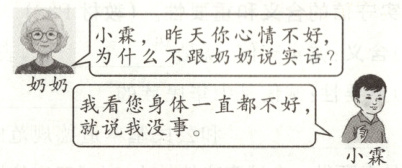 小霖，昨天你心情不好，
为什么不跟奶奶说实话？
奶奶
我看您身体一直都不好，
就说我没事。
小霖